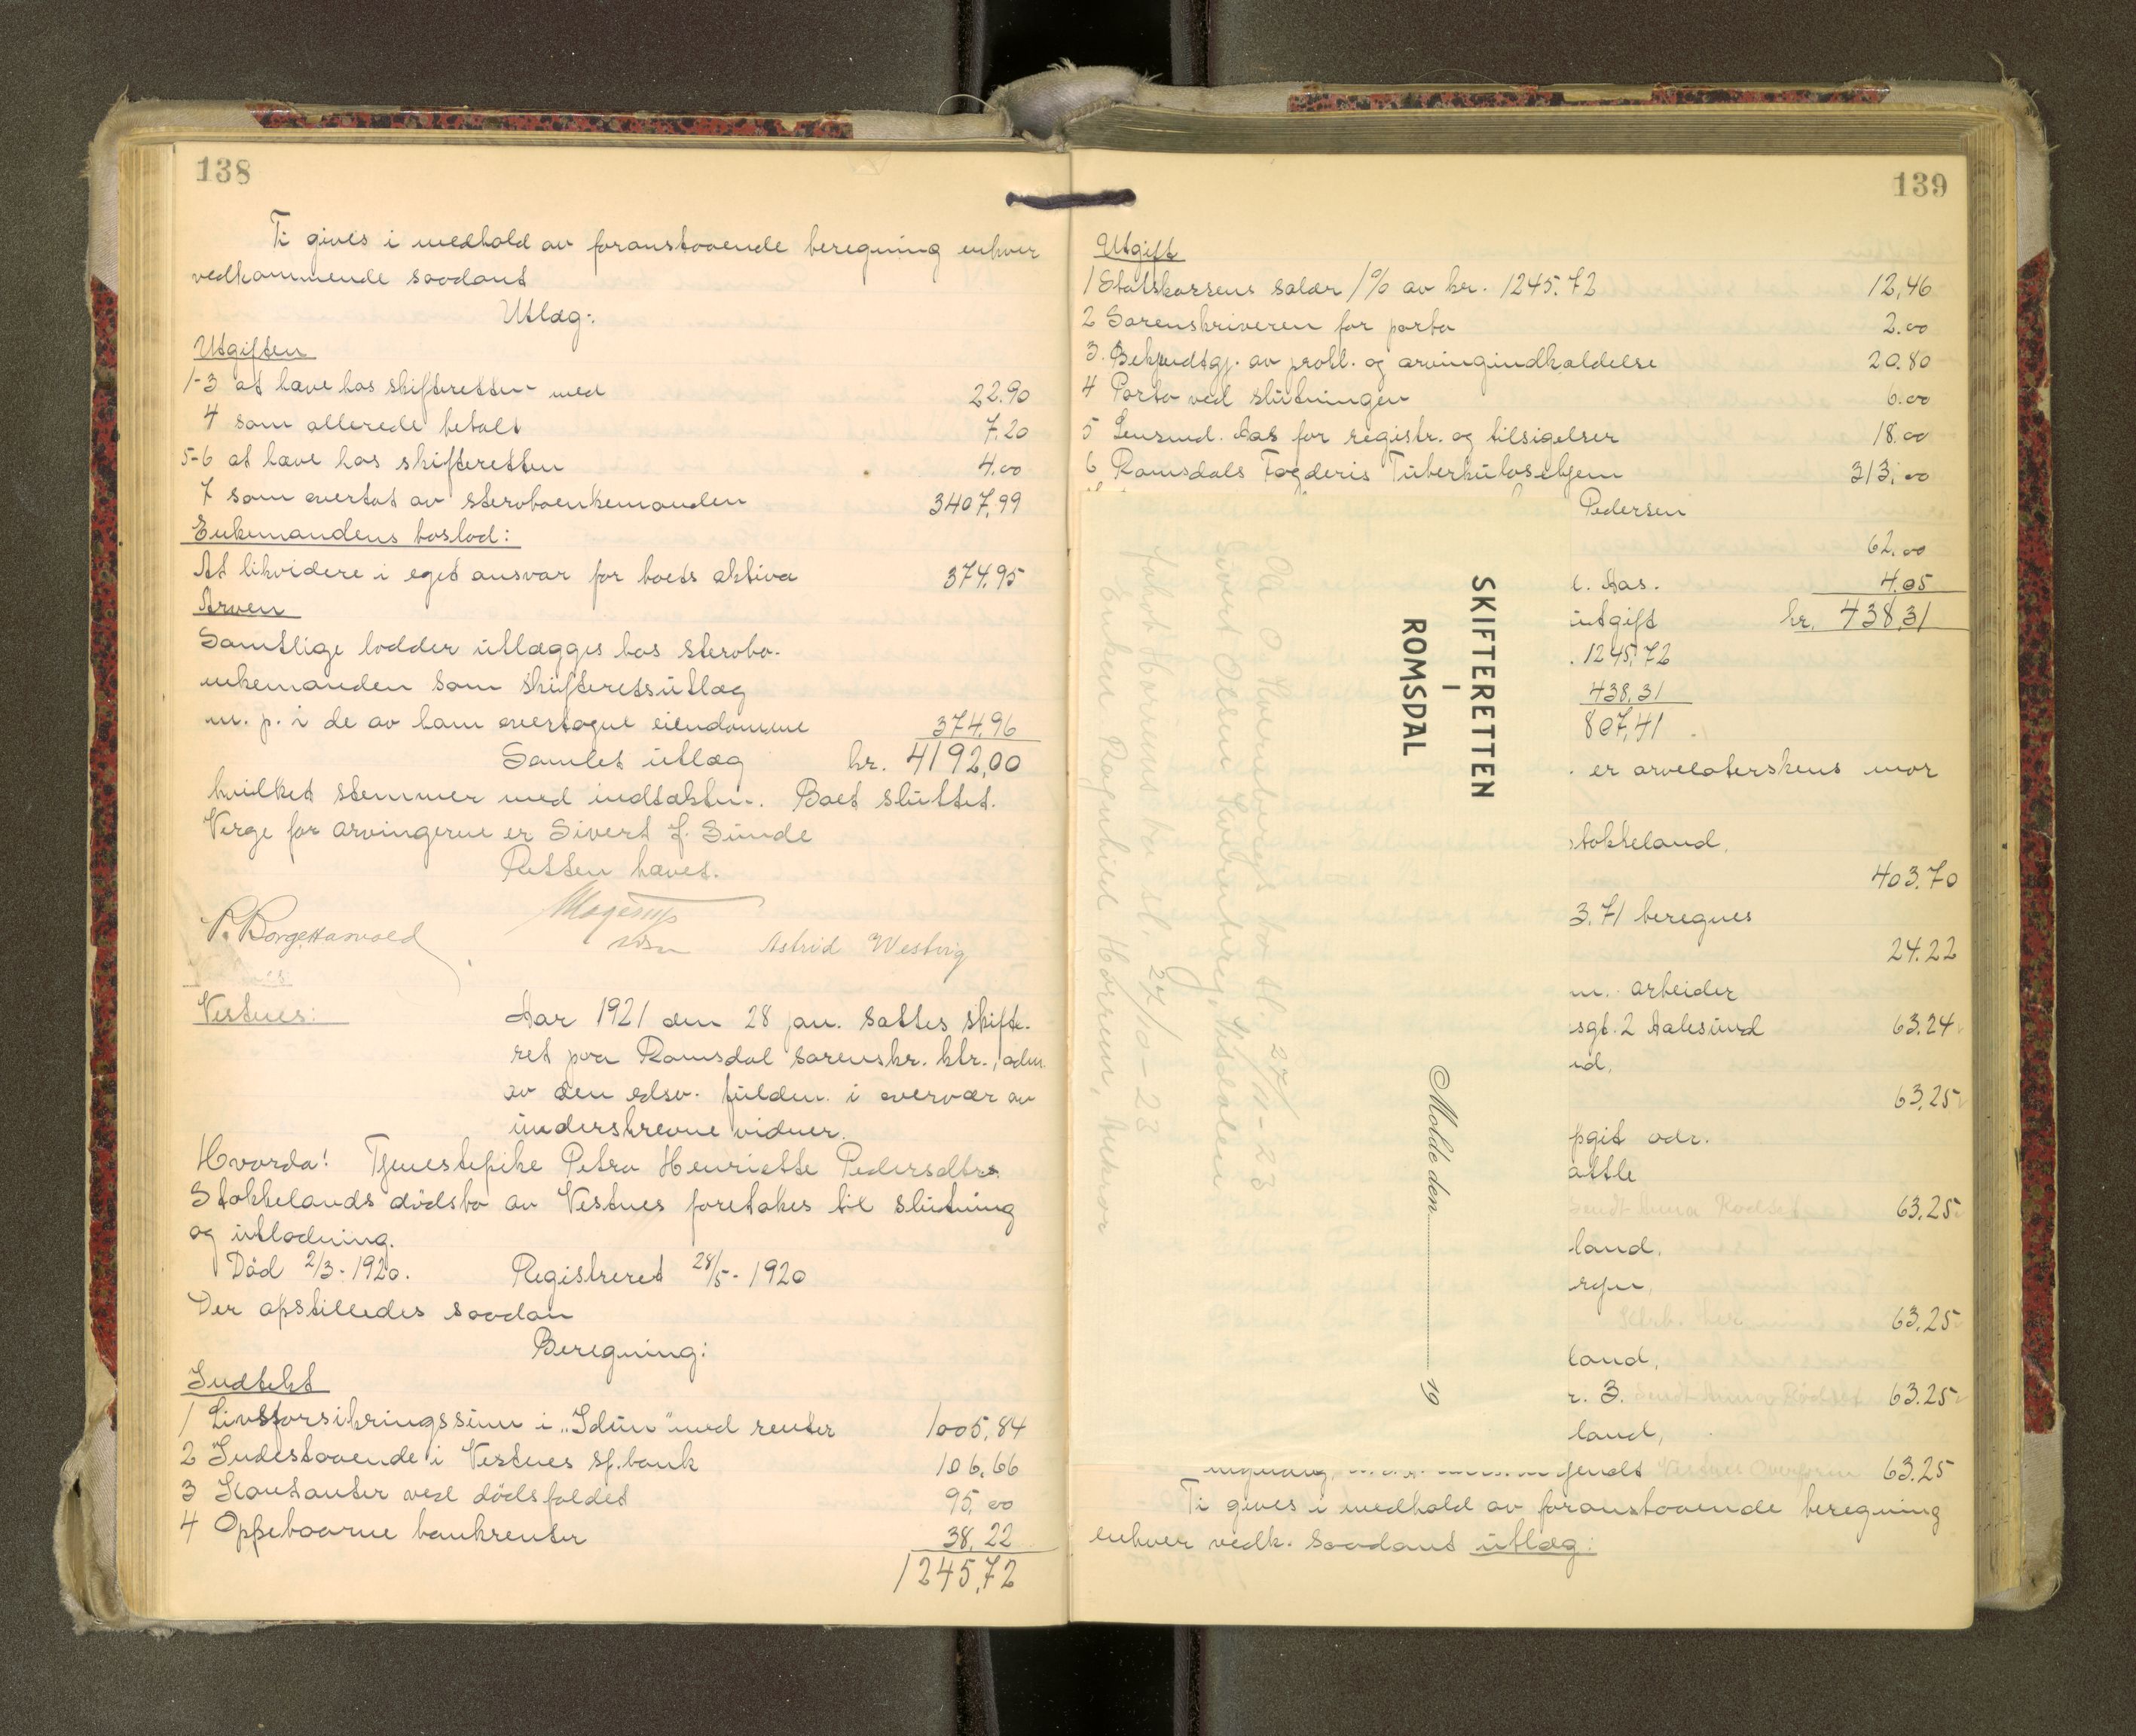 138
Ti gives i medhold av foranstaaende beregning enhver
vedkommende saadant
Utlæg:
Utgiften
1-3 at hæve hos skifteretten med 22.90
4 som allerede betalt 7.20
5-6 at hæve hos skifteretten 4.00
7 som overtat av stervboenkemanden 3407,99
Enkemandens boslod:
At likvidere i eget ansvar for boets aktiva 374.95
Arven
Samtlige lodder utlægges hos stervbo-
enkemanden som skifteretsutlæg
m. p. i de av ham overtagne eiendomme 374,96
Samlet utlæg kr. 4192,00
hvilket stemmer med indtækten. Boet sluttet.
Verge for arvingerne er Sivert J. Sunde
Retten hævet.
P. Borgetanvold
Astrid Westvig
Vestnes:
Aar 1921 den 28 jan. sattes skifte-
ret paa Romsdal sorenskr. ktr., adm.
av den edsv. fuldm. i overvær av
underskrevne vidner.
Hvorda! Tjenestepike Petra Henriette Pedersdtrs
Stokkelands dødsbo av Vestnes foretakes til slutning
og utlodning.
Død 2/3-1920. Registreret 28/5-1920
Der opstilledes saadan
Beregning:
Indtekt
1 Livsforsikringssum i "Idun" med renter 1005,84
2 Indestaaende i Vestnes sp.bank 106,66
3 Kontanter ved dødsfaldet 95,00
4 Oppebaarne bankrenter 38,22
1245,72
139
Utgift
1 Statskassens salær 1% av kr. 1245.72 12,46
2 Sorenskriveren for porto 2.00
3. Bekjendtgj. av prokl. og arvingindkaldelse 20.80
4 Porto ved slutningen 6.00
5 Lensmd. Aas for registr. og tilsigelser 18.00
6 Romsdals Fogderis Tuberkulosehjem 313,00
Pedersen
62.00
l. Aas. 4.05
utgift kr. 438,31
. 1245,72
438,31
807,41
er arvelaterskens mor
stokkeland,
403.70
3.71 beregnes
24.22
m. arbeider
sgt. 2 Aalesund 63.24
nd,
63.25
pgit adr.
attle
Sendt Anna Rødset 63.25
land,
rgen,
63.25
land,
r. 3. Sendt Anna Rødset 63.25
land,
Vestnes Overform 63.25
Ti gives i medhold av foranstaaende beregning
enhver vedk. saadant utlæg:
SKIFTERETTEN
I
ROMSDAL
Molde den 19
27/11-23
27/10-23
Enken Ragnhild Horrem,